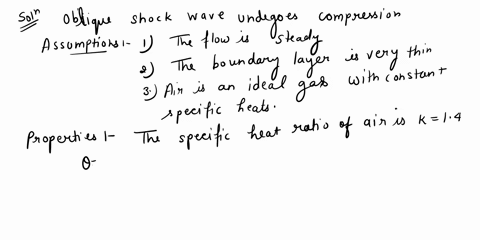 Solⁿ Oblique shock wave undegoes compression
Assumptions :- 1) The flow is steady
2) The boundary layer is very thin
3.) Air is an ideal gas with constant
specific heats.
Properties :- The specific heat ratio of air is K = 1.4
θ-